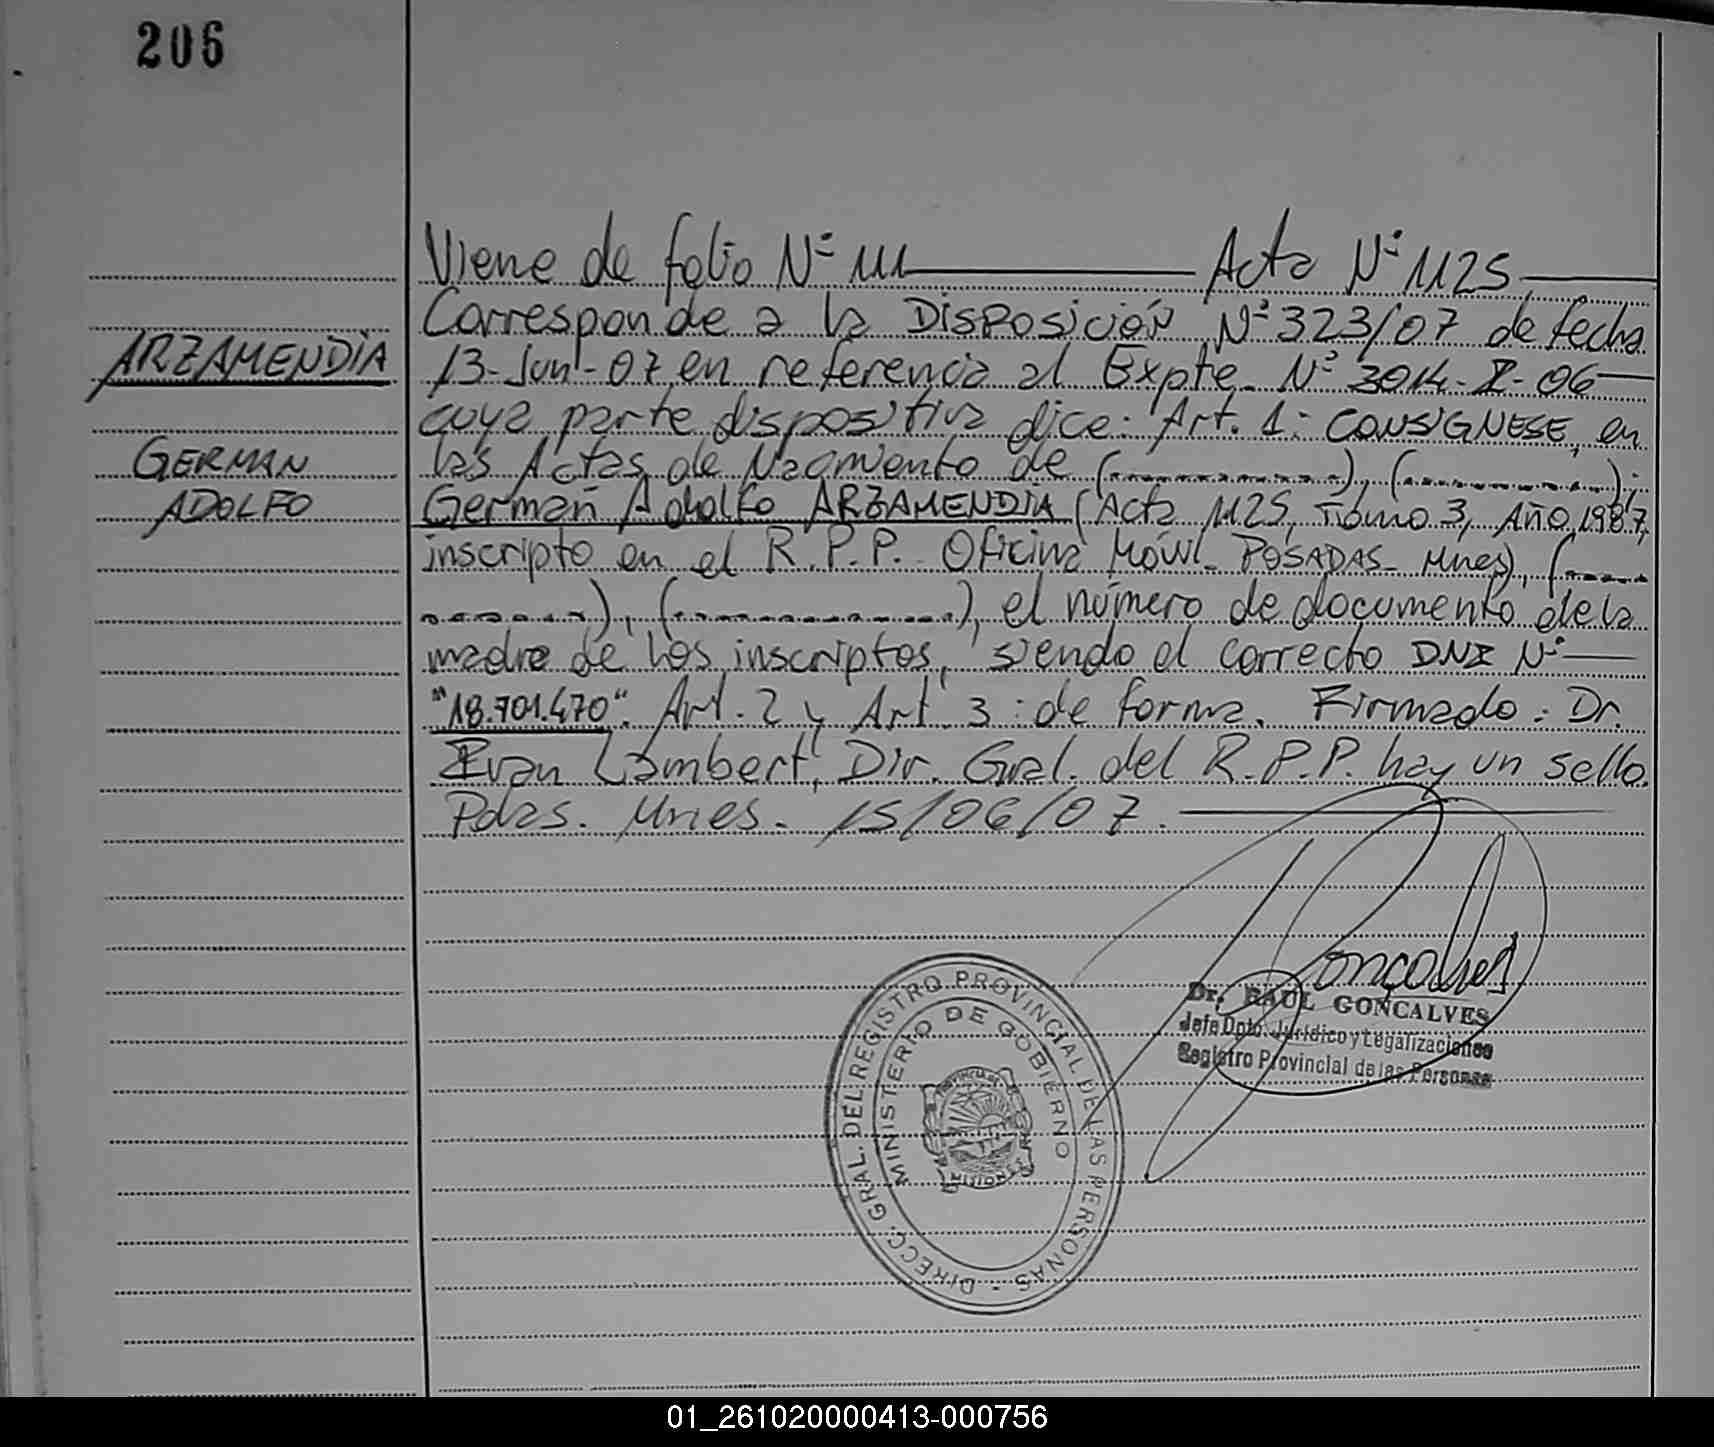 206
Viene de folio Nº 111 Acta Nº 1125
Corresponde a la Disposición Nº 323/07 de fecha
ARZAMENDIA
13-Jun-07 en referencia al Expte. Nº 3014-I-06
cuya parte dispositiva dice: Art. 1: CONSIGNESE, en
GERMAN
las Actas de Nacimiento de (............), (............);
ADOLFO
German Adolfo ARZAMENDIA (Acta 1125, Tomo 3, Año 1987,
inscripto en el R.P.P. Oficina Móvil - POSADAS - Mnes), (......
.........), (................), el número de documento de la
madre de los inscriptos, siendo el correcto DNI Nº
"18.701.470". Art. 2 y Art. 3: de forma. Firmado: Dr.
Ivan Lambert, Dir. Gral. del R.P.P. hay un sello.
Pdas. Mnes. 15/06/07.
Goncalves
Dr. RAUL GONCALVES
Jefe Dpto. Jurídico y Legalizaciones
Registro Provincial de las Personas
DIRECC. GRAL. DEL REGISTRO PROVINCIAL DE LAS PERSONAS -
MINISTERIO DE GOBIERNO
PROVINCIA DE
01_261020000413-000756